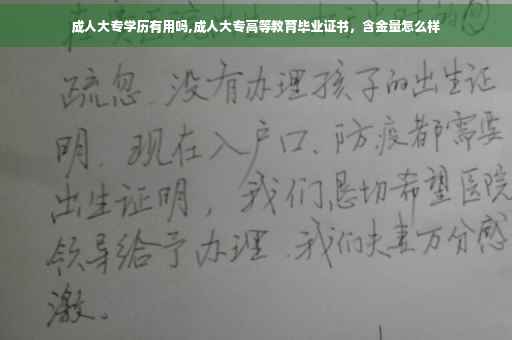 成人大专学历有用吗,成人大专高等教育毕业证书，含金量怎么样
疏忽、没有办理孩子的出生证
明、现在入户口、防疫都需要
出生证明，我们恳切希望医院
领导给予办理、我们夫妻万分感
激。